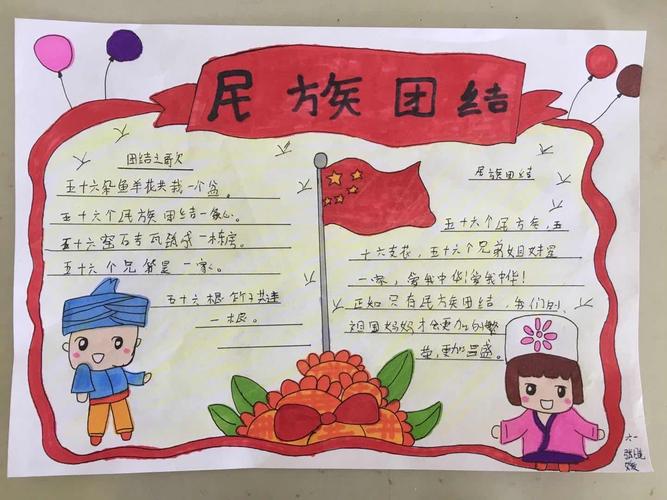 民族团结
团结之歌
五十六朵鲜花共栽一个盆。
五十六个民族团结一条心。
五十六窑石专瓦筑成一栋房。
五十六个兄弟是一家。
五十六根竹子共连
一根。
民族团结
五十六个民族,五
十六支花,五十六个兄弟姐妹是
一家,爱我中华!爱我中华!
正如只有民族团结,我们的
祖国妈妈才会更加的繁
荣,更加昌盛。
六一